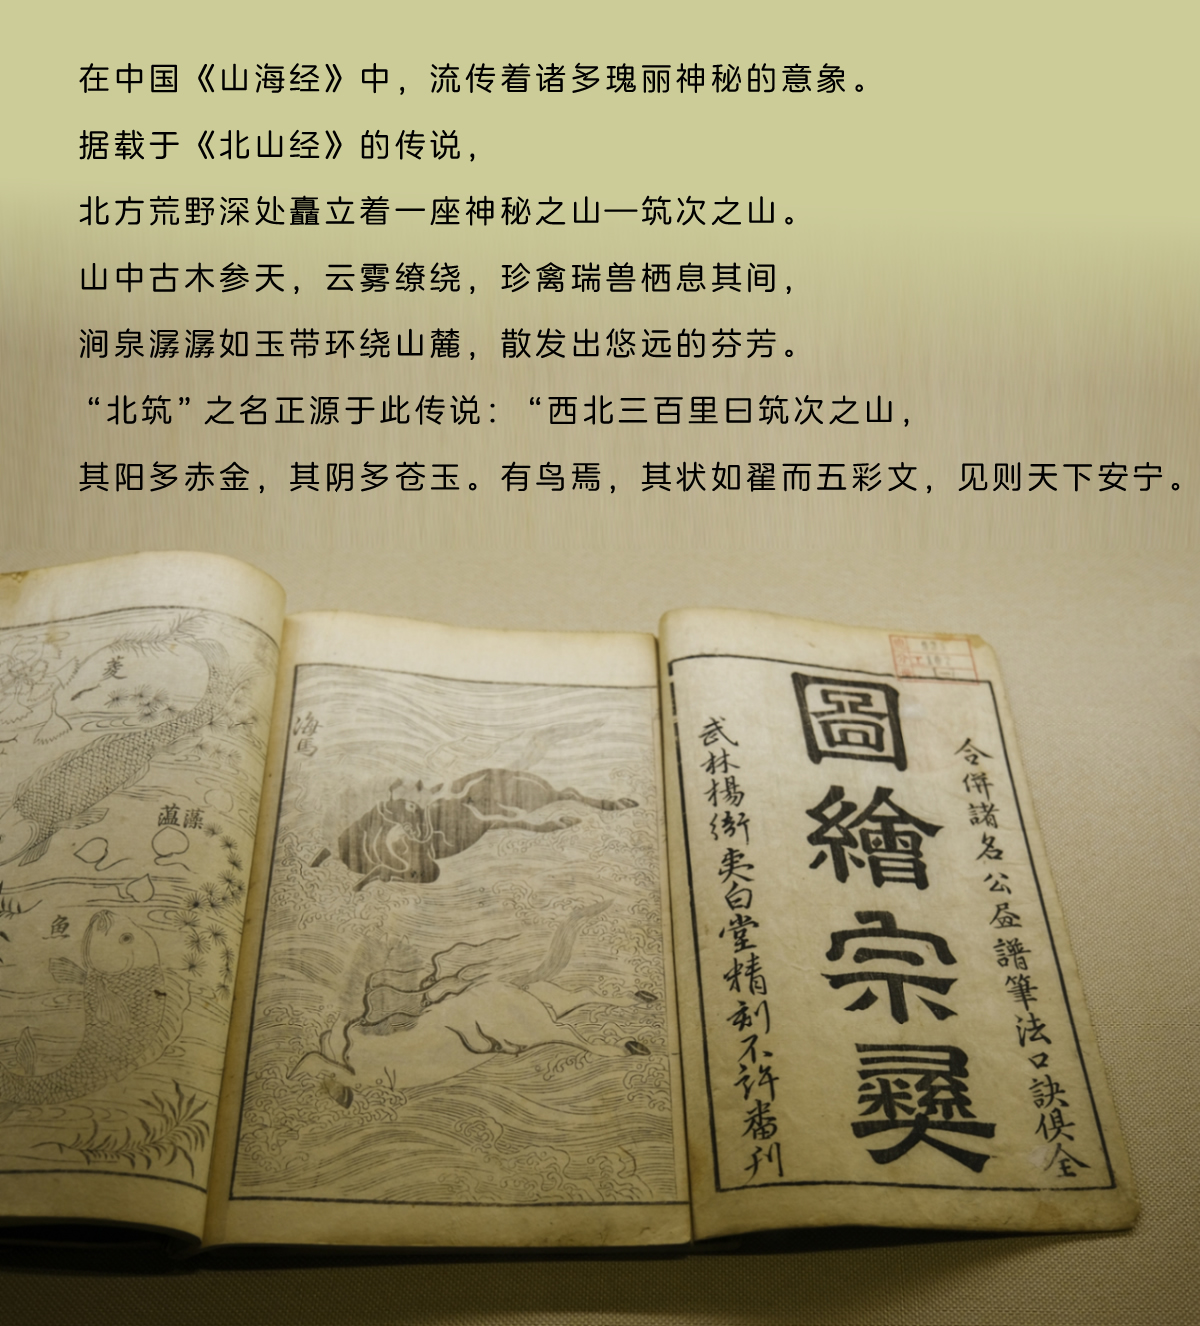 在中国《山海经》中，流传着诸多瑰丽神秘的意象。
据载于《北山经》的传说，
北方荒野深处矗立着一座神秘之山—筑次之山。
山中古木参天，云雾缭绕，珍禽瑞兽栖息其间，
涧泉潺潺如玉带环绕山麓，散发出悠远的芬芳。
“北筑”之名正源于此传说：“西北三百里曰筑次之山，
其阳多赤金，其阴多苍玉。有鸟焉，其状如翟而五彩文，见则天下安宁。
合併諸名公畫譜筆法口訣俱全
圖繪宗彝
武林楊衙夷白堂精刻不許番刊
海馬
菱
蕰藻
魚